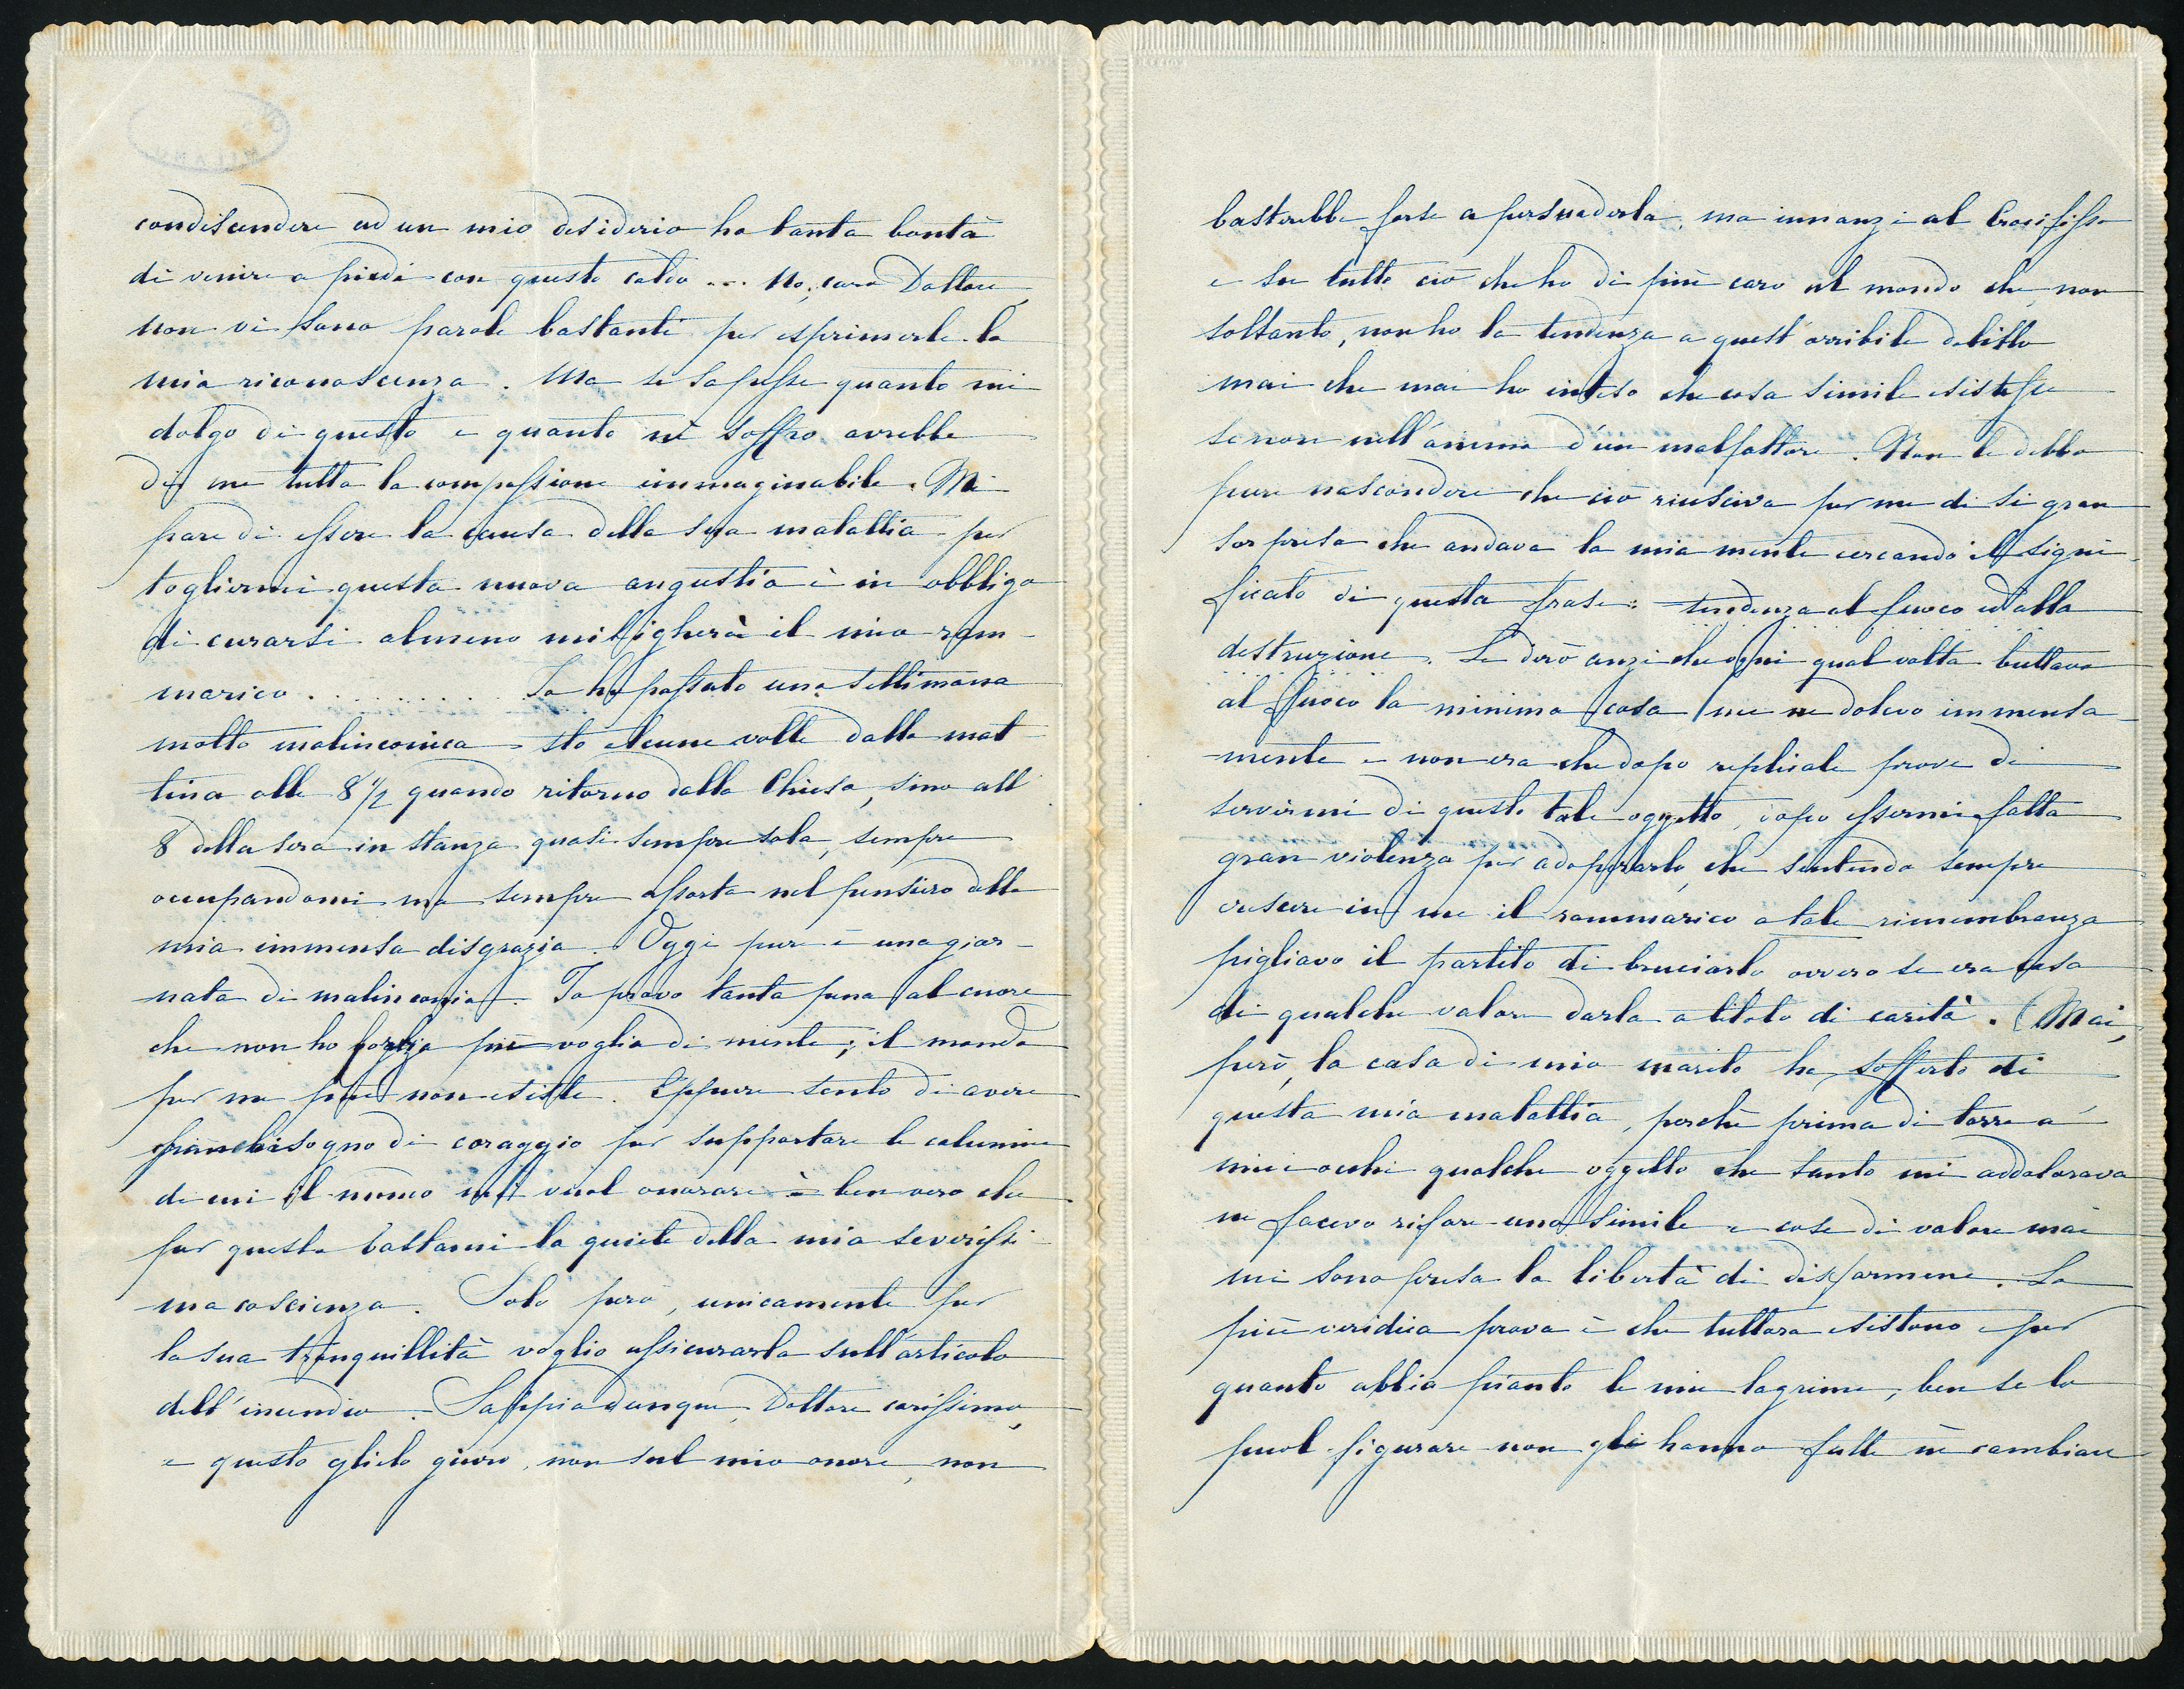 condisendere ad un mio desiderio ha tanta bontà
di venire a piedi con questo caldo ... No, caro Dottore,
non vi sono parole bastanti per esprimerle la
mia riconoscenza. Ma se sapesse quanto mi
dolgo di questo e quanto ne soffro avrebbe
di me tutta la compassione immaginabile. Mi
pare di essere la causa della sua malattia per
togliermi questa nuova angustia è in obbligo
di curarsi almeno mitigherà il mio ram-
marico . . . . . . . . . . Io ho passato una settimana
molto malinconica sto alcune volte dalla mat-
tina alle 8 1/2 quando ritorno dalla Chiesa, sino all'
8 della sera in stanza quasi sempre sola, sempre
occupandomi ma sempre assorta nel pensiero della
mia immensa disgrazia. Oggi pure è una gior-
nata di malinconia. Io provo tanta pena al cuore
che non ho più voglia di niente; il mondo
per me più non esiste. Eppure sento di avere
gran bisogno di coraggio per sopportare le calunnie
di cui il mondo mi vuol onorare è ben vero che
per questo bastami la quiete della mia severissi-
ma coscienza. Solo però, unicamente per
la sua tranquillità voglio assicurarla sull'articolo
dell'incendio. Sappia dunque, Dottore carissimo,
e questo glielo giuro, non sul mio onore, non
basterebbe forse a persuaderla, ma innanzi al Crocifisso
e su tutto ciò che ho di più caro al mondo che, non
soltanto, non ho la tendenza a quest'orribile delitto
mai che mai ho inteso che cosa simile esistesse
se non nell'animo d'un malfattore. Non le debbo
pure nascondere che ciò riusciva per me di sì gran
sorpresa che andava la mia mente cercando il signi-
ficato di questa frase: tendenza al fuoco ed alla
destruzione. Le dirò anzi che ogni qual volta buttava
al fuoco la minima cosa me ne dolevo immensa-
mente e non era che dopo replicate prove di
servirmi di questo tale oggetto, dopo essermi fatta
gran violenza per adoperarlo, che sentendo sempre
crescere in me il rammarico a tale rimembranza
pigliavo il partito di bruciarlo ovvero se era cosa
di qualche valore darla a titolo di carità. (Mai,
però, la casa di mio marito ha sofferto di
questa mia malattia, perchè prima di torre a'
miei occhi qualche oggetto che tanto mi addolorava
ne facevo rifare uno simile e cose di valore mai
mi sono presa la libertà di disfarmene. La
più veridica prova è che tuttora esistono e per
quanto abbia pianto le mie lagrime, ben se lo
puol figurare non gli hanno fatte nè cambiare